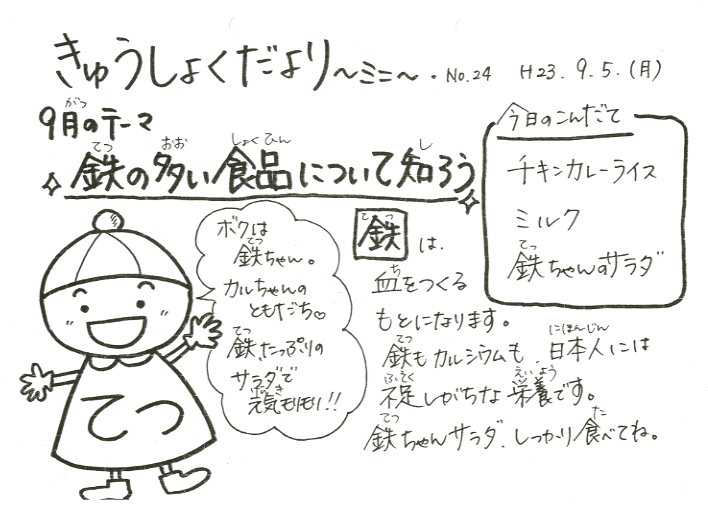 きゅうしょくだより～ミニ～・No.24 H23.9.5.(月)
9月のテーマ
鉄の多い食品について知ろう
今日のこんだて
チキンカレーライス
ミルク
鉄ちゃんのサラダ
ボクは
鉄ちゃん。
カルちゃんの
ともだち♡
鉄たっぷりの
サラダで
元気もりもり!!
てつ
鉄は、
血をつくる
もとになります。
鉄もカルシウムも、日本人には
不足しがちな栄養です。
鉄ちゃんサラダ、しっかり食べてね。